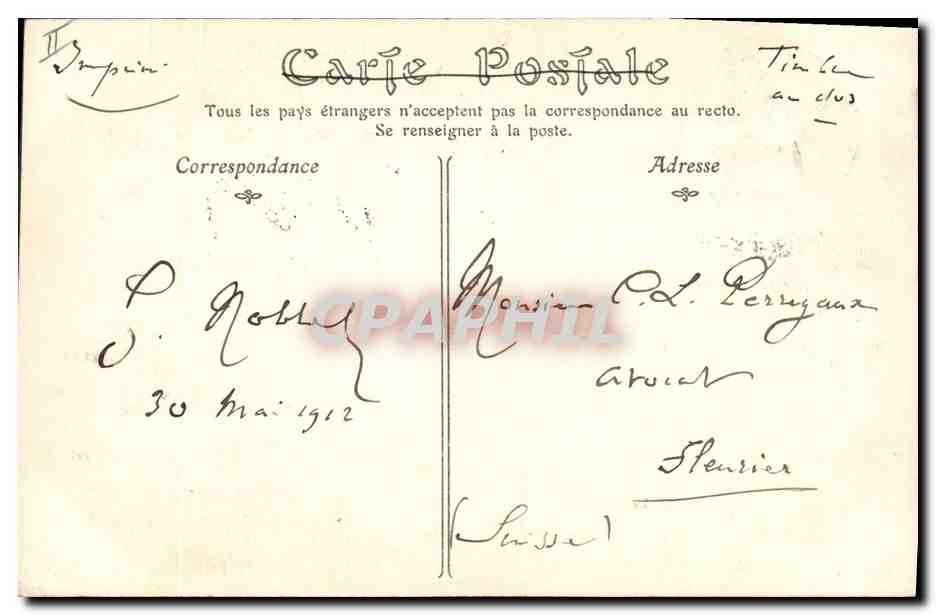 II
Imprimé
Carte Postale
Timbre
au dos
Tous les pays étrangers n'acceptent pas la correspondance au recto.
Se renseigner à la poste.
Correspondance
Adresse
S. Nobbel
30 Mai 1912
Monsieur C. L. Perregaux
avocat
Fleurier
(Suisse)
CPAPHIL